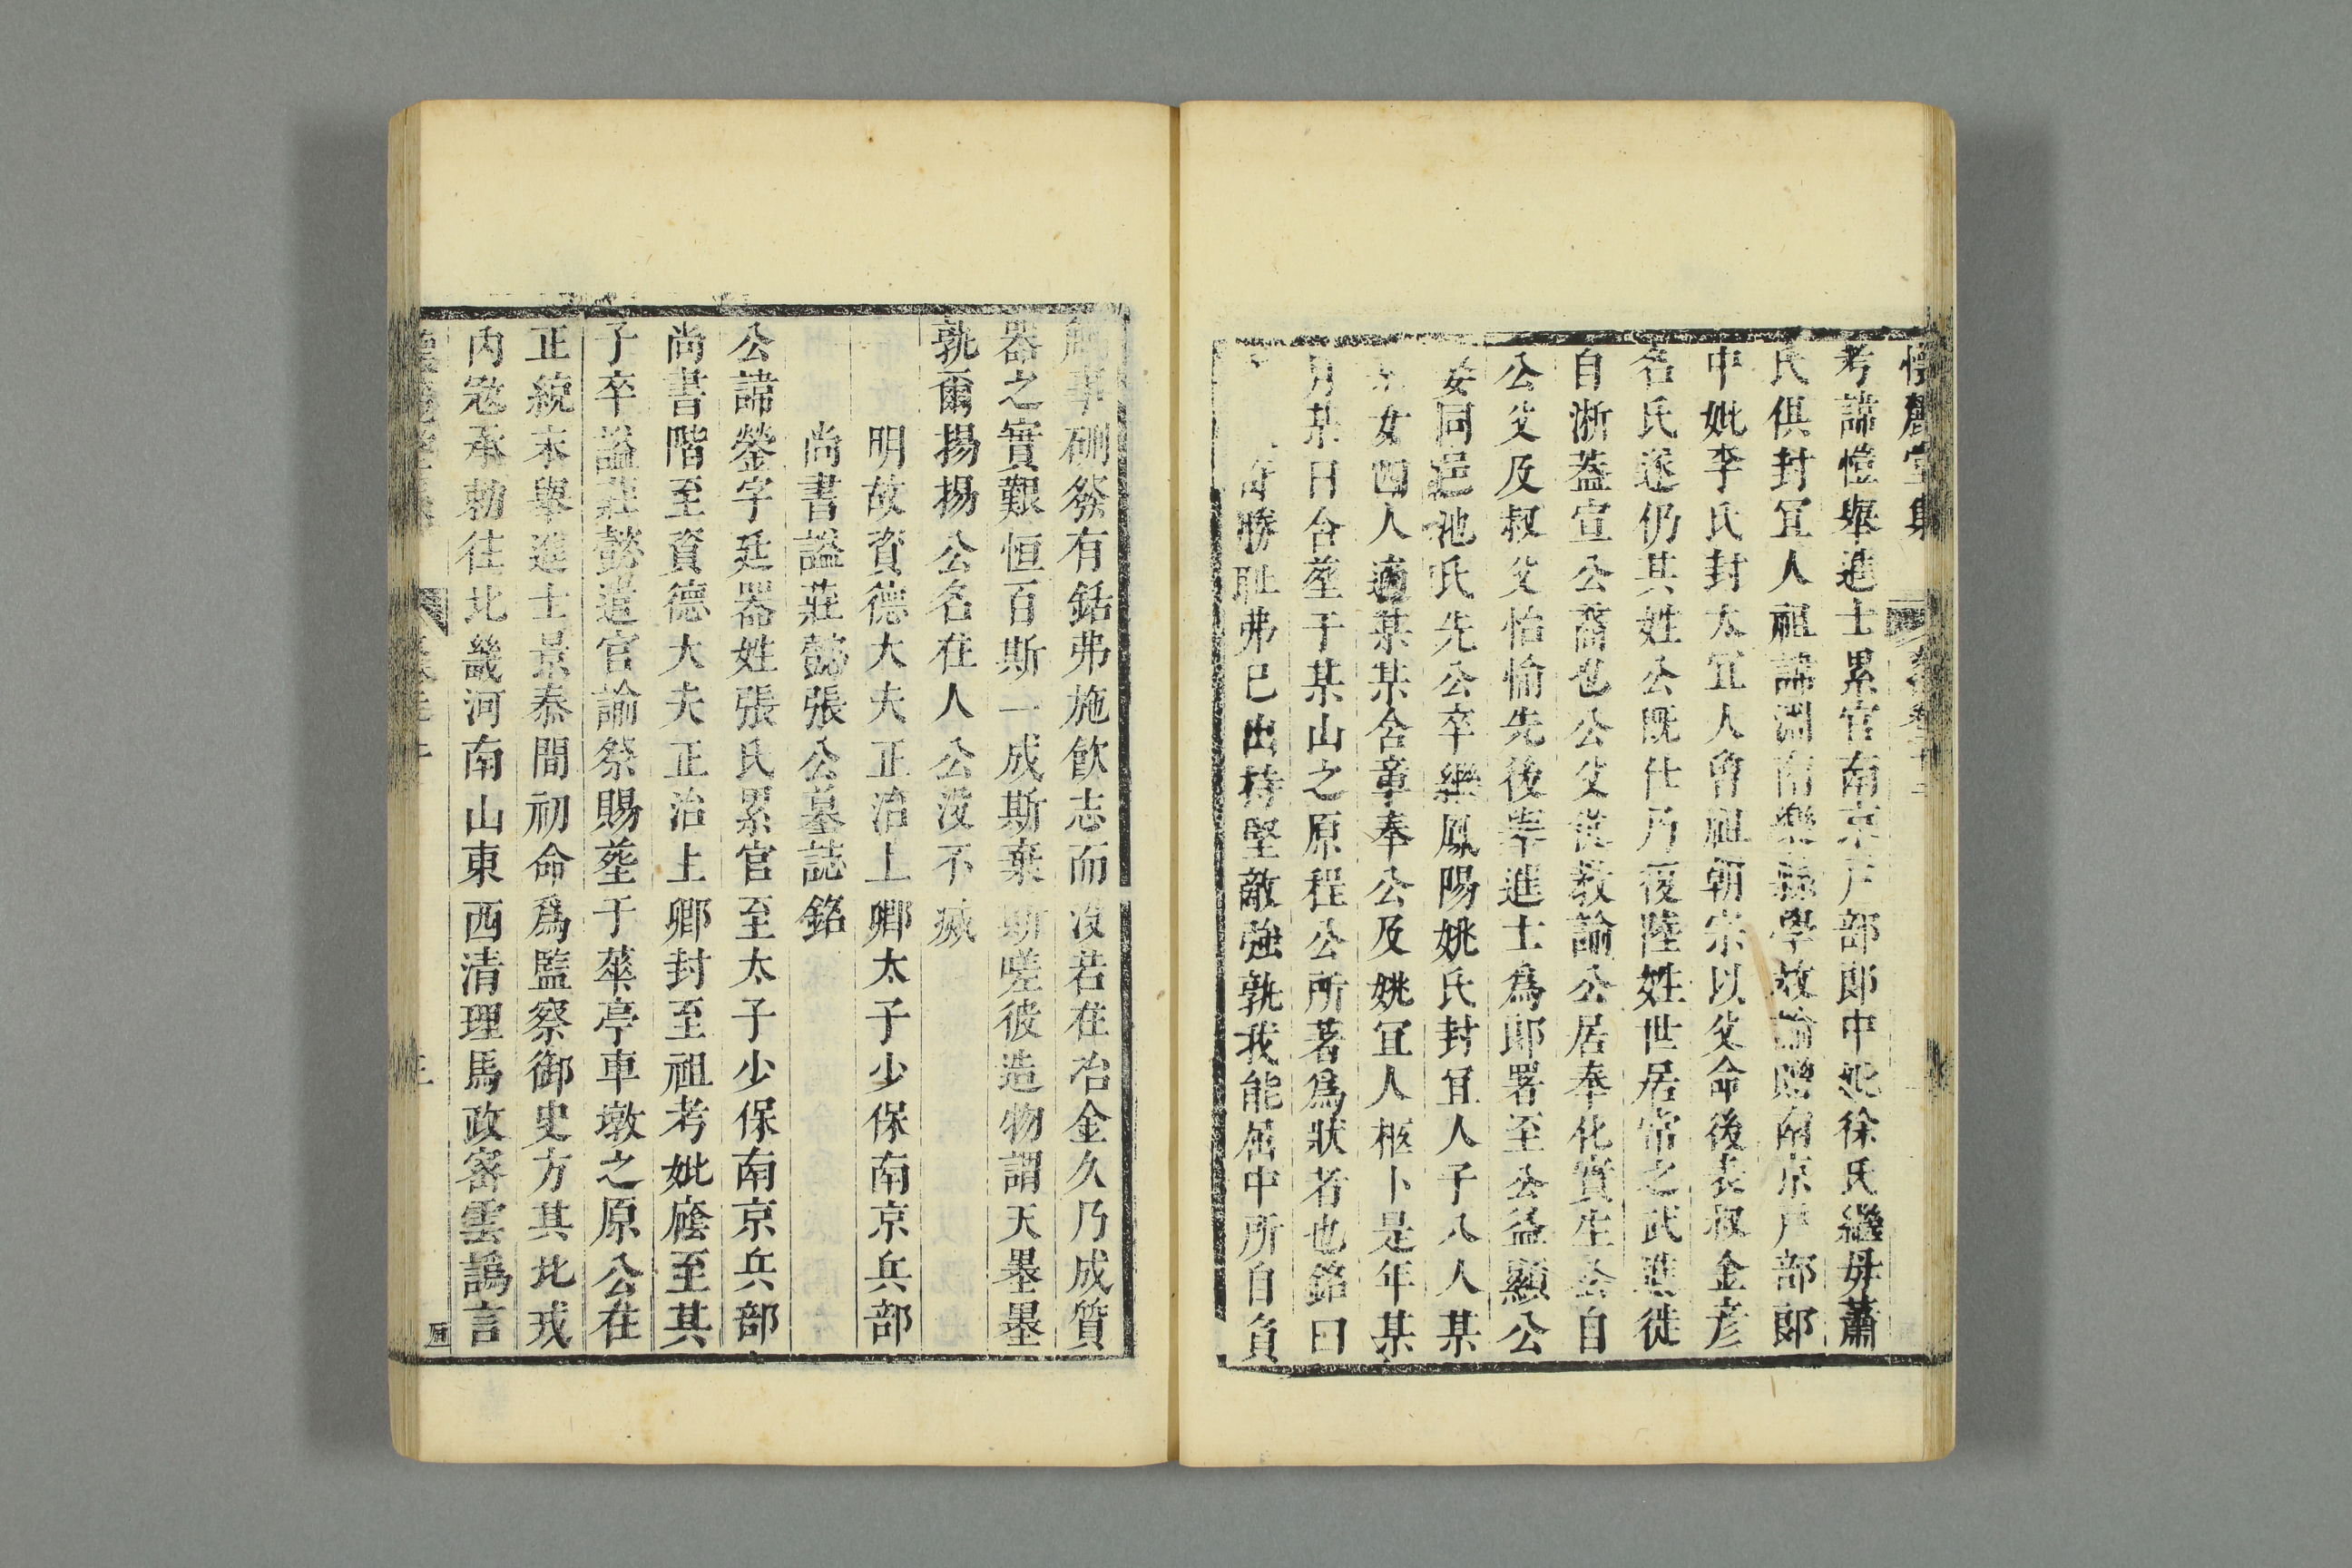 懷麓堂集
考諱愷舉進士累官南京戸部郎中妣徐氏繼毋蕭
氏俱封冝人祖諱淵南樂縣學教諭贈南京戸部郎
中妣李氏封太冝人曾祖朝宗以父命後表叔金彦
名氏遂仍其姓公既仕乃復陸姓世居常之武進徙
自浙蓋宣公裔也公父從教諭公居奉化實生公自
公父及叔父怡愉先後舉進士爲郎署至公益顯公
娶同邑池氏先公卒繼鳳陽姚氏封冝人子八人某
女四人適某某舍章奉公及姚冝人柩卜是年某
月某日合塟于某山之原程公所著爲狀者也銘曰
奇勝耻弗已出持堅敵強孰我能屈中所自負
觸事硎發有銛弗施飲志而沒若在冶金久乃成質
器之實艱恒百斯一成斯棄斯嗟彼造物謂天墨墨
孰爾揚揚公名在人公沒不滅
明故資德大夫正治上卿太子少保南京兵部
尚書謚莊懿張公墓誌銘
公諱鎣字廷器姓張氏累官至太子少保南京兵部
尚書階至資德大夫正治上卿封至祖考妣廕至其
子卒謚莊懿遣官諭祭賜塟于華亭車墩之原公在
正統末舉進士景泰間初命爲監察御史方其北戎
内宼承勅往北畿河南山東西清理馬政密雲譌言